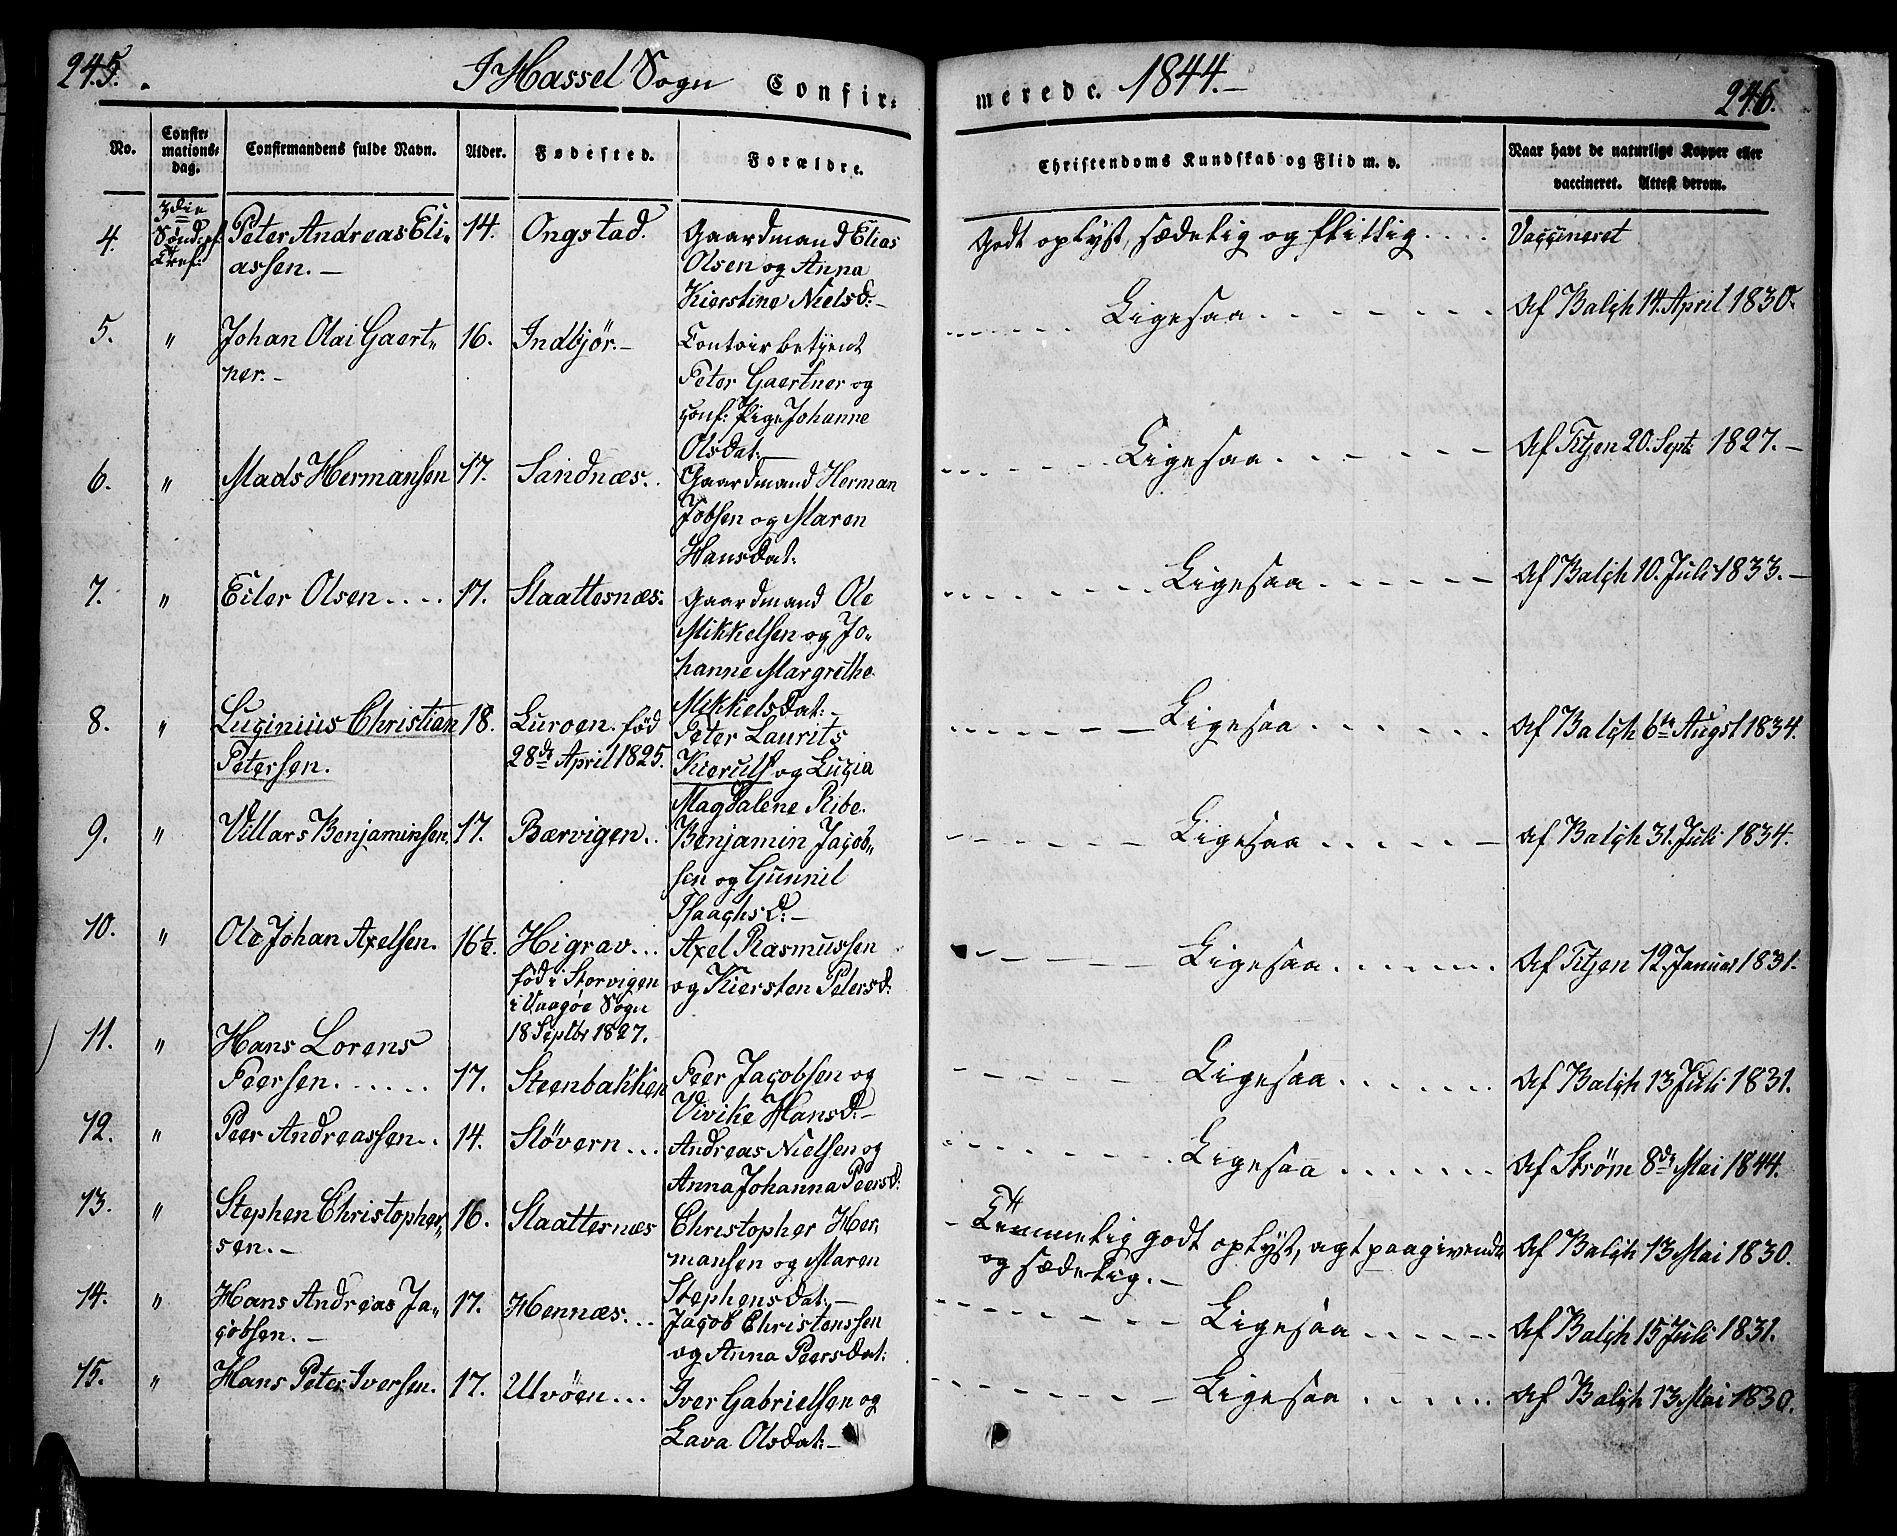 245.
I Hassel Sogn Confir-
merede. 1844.-
246.
No.
Confir-
mations-
dag.
Confirmandens fulde Navn.
Alder.
Fødested.
Forældre.
Christendoms Kundskab og Flid m. v.
Naar havt de naturlige Kopper eller
vaccineret. Attest derom.
4.
3die
Sønd. ef.
Tref:
Peter Andreas Eli-
assen.-
14.
Ongstad.
Gaardmand Elias
Olsen og Anna
Kierstine Nielsd:-
Godt oplyst, sædelig og flittig....
Vaccineret
Af Balch 14 April 1830.
5.
"
Johan Olai Gaert-
ner.-
16.
Indbjør.-
Contoirbetjent
Peter Gaertner og
conf: Pige Johanne
Olsdat:
Ligesaa
Af Titjen 20. Sept: 1827.-
6.
"
Mads Hermansen
17.
Sandnæs.
Gaardmand Herman
Jobsen og Maren
Hansdat:
Ligesaa
Af Balch 10. Juli 1833.-
7.
"
Eiler Olsen....
17.
Slaattesnæs.
Gaardmand Ole
Mikkelsen og Jo-
hanne Margrethe
Mikkelsdat:-
Ligesaa
8.
"
Lucinius Christian
Petersen.
18.
Luroen. fød
28de April 1825.
Peter Laurits
Kierulf og Lucia
Magdalene Ribe.
Ligesaa
Af Balch 6te Augst 1834.
9.
"
Villars Benjaminsen.
17.
Bærvigen..
Benjamin Jacob-
sen og Gunnil
Isaachsd:-
Ligesaa
Af Balch 31. Juli 1834.
10.
"
Ole Johan Axelsen.
16½.
Higrav...
fød i Storvigen
i Vaagøe Sogn
18 Septbr 1827.
Axel Rasmussen
og Kiersten Petersd:
Ligesaa
Af Titjen 12. Januar 1831.
11.
"
Hans Lorens
Peersen......
17.
Steenbakken
Peer Jacobsen og
Vivike Hansd:-
Ligesaa
Af Balch 13 Juli 1831.
12.
"
Peer Andreassen..
14.
Støvern...
Andreas Nielsen og
Anna Johanna Peersd:
Ligesaa
Af Strøm 8de Mai 1844.
13.
"
Stephen Christopher-
sen.-
16.
Slaatternæs
Christopher Her-
mansen og Maren
Stephensdat:-
Temmelig godt oplyst, agtpaagivende
og sædelig.-
Af Balch 13 Mai 1830.
14.
"
Hans Andreas Ja-
cobsen.-
17.
Hennæs...
Jacob Christenssen
og Anna Peersdat:
Ligesaa
Af Balch 15 Juli 1831.
15.
"
Hans Peter Iversen.
17.
Ulvöen...
Iver Gabrielsen og
Lava Olsdat:-
Ligesaa
Af Balch 13 Mai 1830.